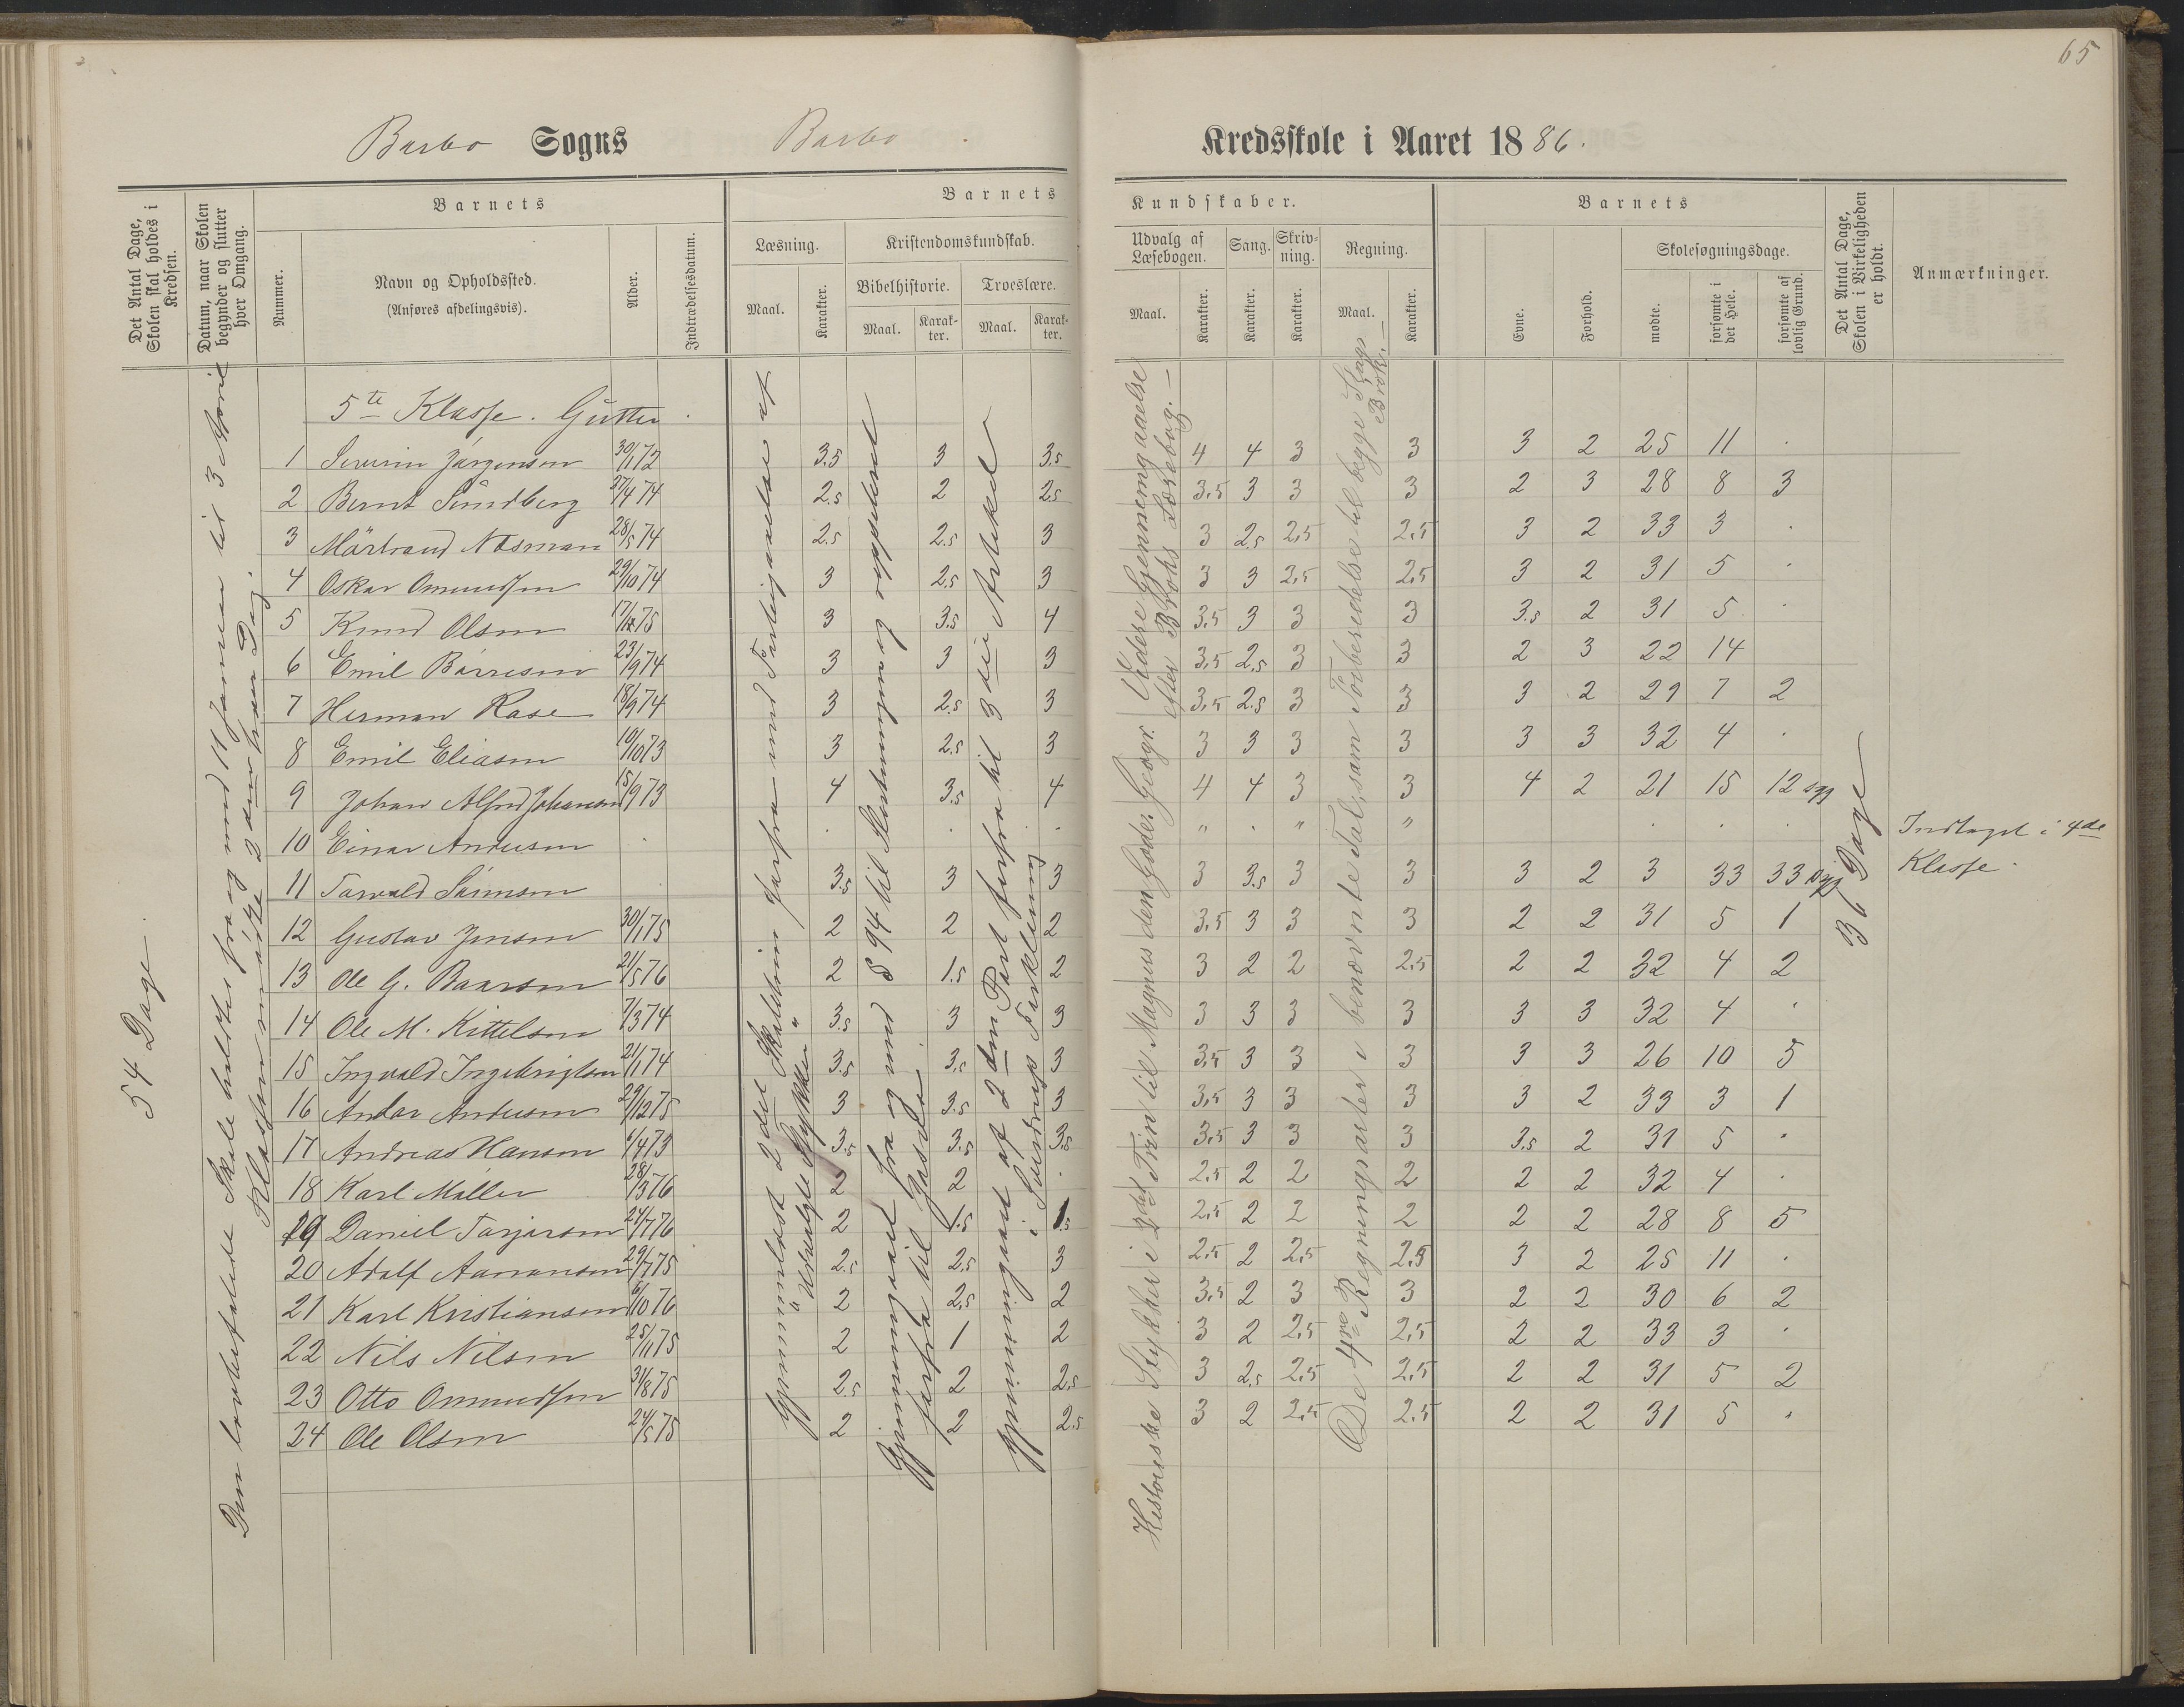 65
Barbo Sogns Barbo Kredsskole i Aaret 1886.
Det Antal Dage, Skolen skal holdes i Kredsen.
Datum, naar Skolen begynder og slutter hver Omgang.
Barnets
Nummer.
Navn og Opholdssted.
(Anføres afdelingsvis).
Alder.
Indtrædelsesdatum.
Barnets Kundskaber.
Læsning.
Maal.
Karakter.
Kristendomskundskab.
Bibelhistorie.
Maal.
Karakter.
Troeslære.
Maal.
Karakter.
Udvalg af Læsebogen.
Maal.
Karakter.
Sang.
Karakter.
Skrivning.
Karakter.
Regning.
Maal.
Karakter.
Barnets
Evne.
Forhold.
Skolesøgningsdage.
mødte.
forsømte i det Hele.
forsømte af lovlig Grund.
Det Antal Dage, Skolen i Virkeligheden er holdt.
Anmærkninger.
54 Dage.
Den lovbefalede Skole holdtes fra og med 11 Januar til 3 April
Klassen mødte 2 hver Dag.
Gjennemlæst 2det Skoletrin forfra med Færdiglæselse af
Udvalgte Stykker
Gjennemgaaet fra og med § 94 til Slutningen og opptaget
forfra til
Gjennemgaaet af 2den Part forfra til 3die Artikel
i Sverdrups Forklaring
Historiske Stykker i 2det Trin til Magnus den Gode. Geogr. Videre Gjennemgaaelse
efter Broks Læsebog.
De 4re Regningsarter i benævnte Tal, samt Forberedelse til begge Slags
Brøk.
5te Klasse. Gutter.
1 Severin Jørgensen 30/1 72 3.5 3 3.5 4 4 3 3 3 2 25 11 .
2 Bernt Sundberg 27/4 74 2.5 2 2.5 3,5 3 3 3 2 3 28 8 3
3 Mårtrand Næsman 28/5 74 2.5 2.5 3 3 2.5 2,5 2,5 3 2 33 3 .
4 Oskar Omundsen 29/10 74 3 2.5 3 3 3 2,5 2,5 3 2 31 5 .
5 Knud Olsen 17/12 75 3 3.5 4 3,5 3 3 3 3.5 2 31 5 .
6 Emil Børresen 23/9 74 3 3 3 3,5 2.5 3 3 2 3 22 14
7 Herman Rase 18/9 74 3 2.5 3 3,5 2.5 3 3 3 2 29 7 2
8 Emil Eliasen 10/10 73 3 2.5 3 3 3 3 3 3 3 32 4 .
9 Johan Alfred Johansen 15/9 73 4 3.5 4 4 4 3 3 4 2 21 15 12 syg
10 Einar Andersen . . . . " . " " . . . Indtaget i 4de Klasse.
11 Torvald Sørensen 3.5 3 3 3 3.5 3 3 3 2 3 33 33 syg
12 Gustav Jensen 30/1 75 2 2 2 3,5 3 3 3 2 2 31 5 1
13 Ole G. Baarsen 21/5 76 2 1.5 2 3 2 2 2,5 2 2 32 4 2
14 Ole M. Kittelsen 7/3 74 3.5 3 3 3 3 3 3 3 3 32 4 .
15 Ingvald Ingebrigtsen 21/1 74 3.5 3.5 3 3,5 3 3 3 3 3 26 10 5
16 Andor Andersen 29/12 75 3 3.5 3 3,5 3 3 3 3 2 33 3 1
17 Andreas Hansen 1/4 73 3.5 3.5 3.5 3,5 3 3 3 3.5 2 31 5 .
18 Karl Møller 28/3 76 2 2 . 2,5 2 2 2 2 2 32 4 .
19 Daniel Torjersen 24/7 76 2 1.5 1.5 2,5 2 2 2 2 2 28 8 5
20 Adolf Aanonsen 29/7 75 2.5 2.5 3 2,5 2 2,5 2,5 3 2 25 11 .
21 Karl Kristiansen 6/10 76 2 2.5 2 3,5 2 3 3 2 2 30 6 2
22 Nils Nilsen 25/1 75 2 1 2 3 2 2,5 2,5 2 2 33 3 .
23 Otto Omundsen 31/8 75 2.5 2 2.5 3 2.5 2,5 2,5 2 2 31 5 2
24 Ole Olsen 24/5 75 2 2 2.5 3 2 2,5 2,5 2 2 31 5 .
36 Dage